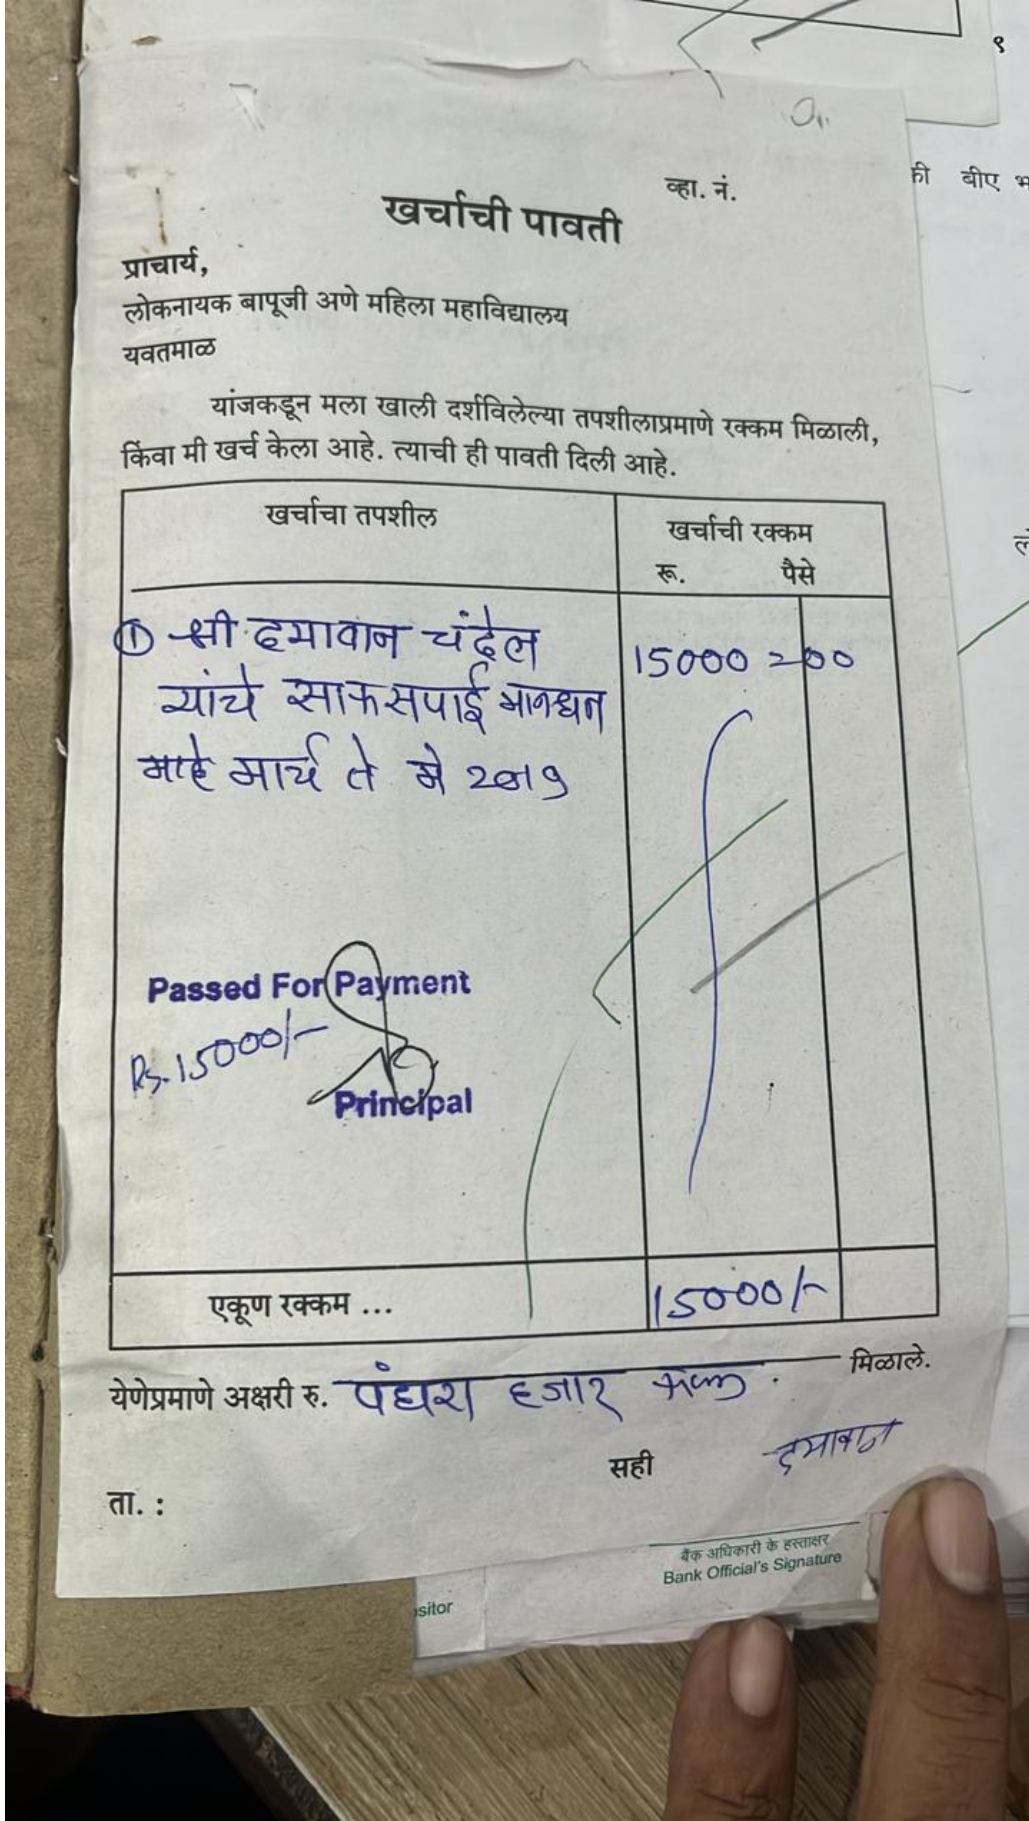 ९
व्हा. नं.
की बीए
खर्चाची पावती
प्राचार्य,
लोकनायक बापूजी अणे महिला महाविद्यालय
यवतमाळ
यांजकडून मला खाली दर्शविलेल्या तपशीलाप्रमाणे रक्कम मिळाली,
किंवा मी खर्च केला आहे. त्याची ही पावती दिली आहे.
खर्चाचा तपशील खर्चाची रक्कम
रू. पैसे
① श्री दयावान चंदेल 15000 =00
यांचे साफसपाई मानधन
माहे मार्च ते मे 2019
Passed For Payment
Rs. 15000/-
Principal
एकूण रक्कम ... 15000/-
येणेप्रमाणे अक्षरी रु. पंधरा हजार फक्त. मिळाले.
सही दयावान
ता. :
बैंक अधिकारी के हस्ताक्षर
Bank Official's Signature